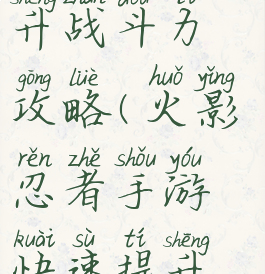 shēng zhàn dòu lì
升战斗力
gōng lüè huǒ yǐng
攻略(火影
rěn zhě shǒu yóu
忍者手游
kuài sù tí shēng
快速提升